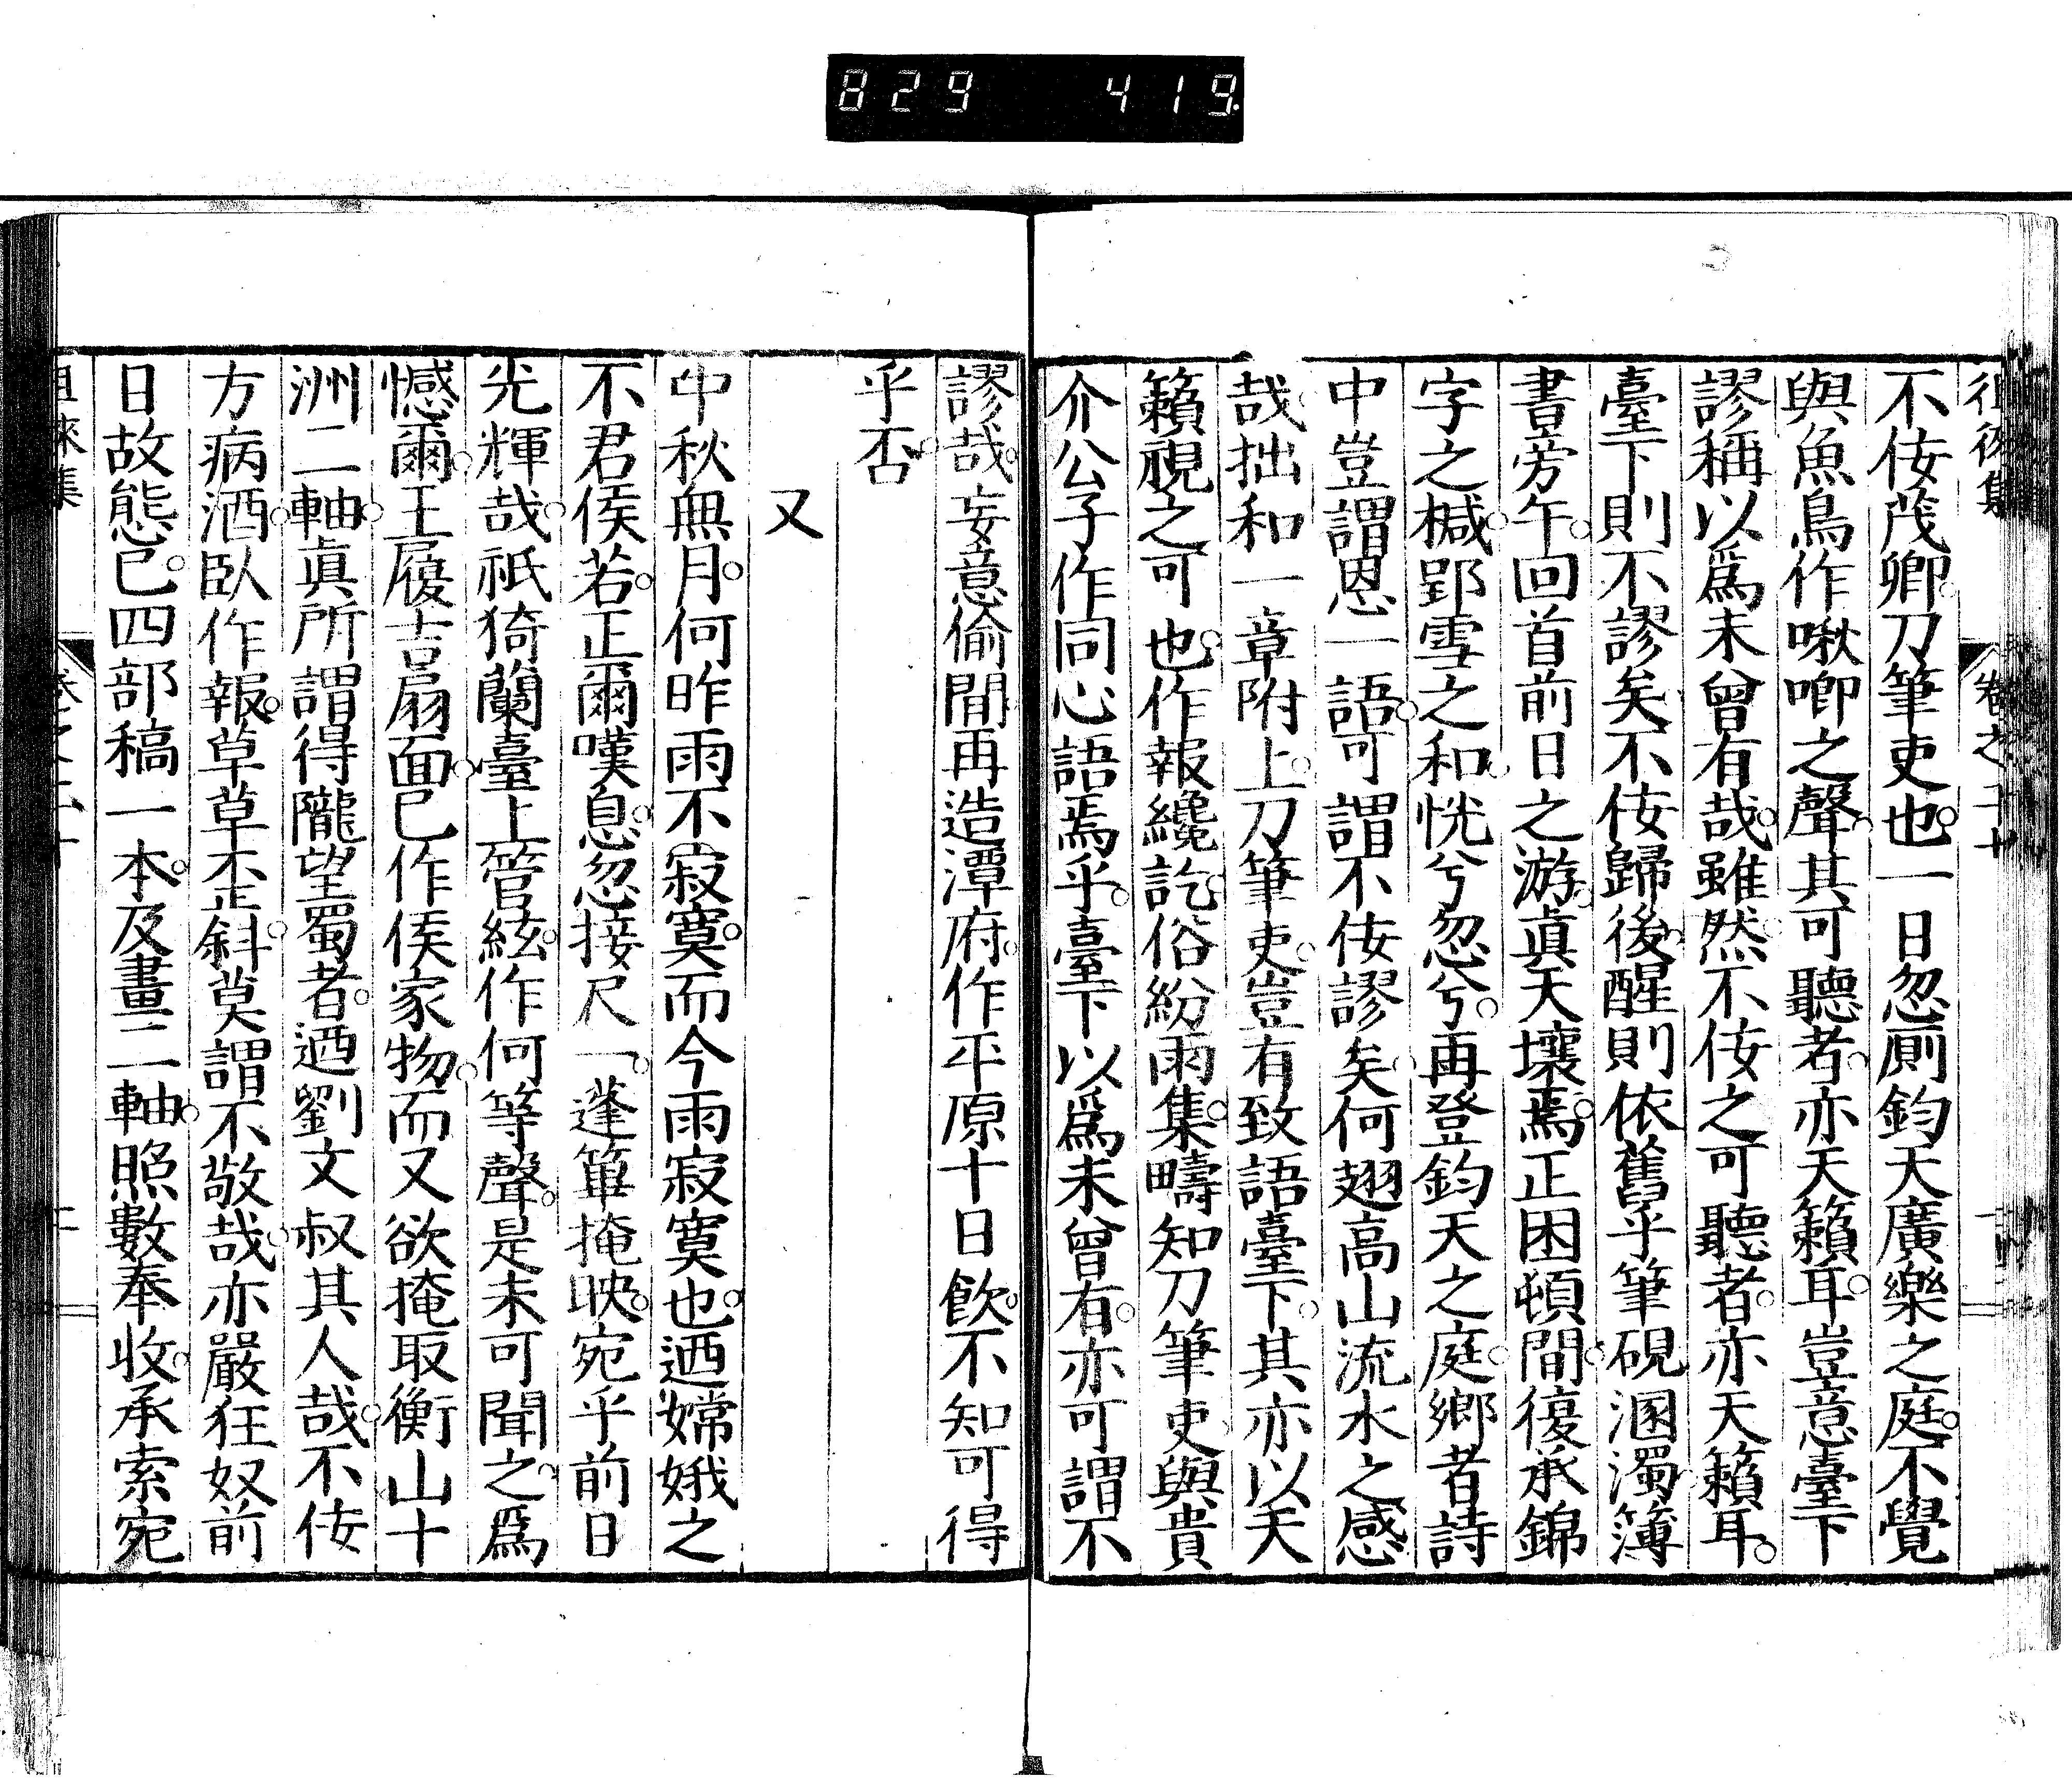 829 419
不佞茂卿刀筆吏也一日忽厠鈞天廣樂之庭不覺
與魚鳥作啾喞之聲其可聽者亦天籟耳豈意臺下
謬稱以爲未曾有哉雖然不佞之可聽者亦天籟耳
臺下則不謬矣不佞歸後醒則依舊乎筆硯溷濁簿
書旁午回首前日之游眞天壤焉正困頓間復承錦
字之椷郢雪之和恍兮忽兮再登鈞天之庭鄉者詩
中豈謂恩一語可謂不佞謬矣何翅高山流水之感
哉拙和一章附上刀筆吏豈有致語臺下其亦以天
籟視之可也作報纔訖俗紛雨集疇知刀筆吏與貴
介公子作同心語焉乎臺下以爲未曾有亦可謂不
謬哉妄意偷間再造潭府作平原十日飲不知可得
乎否
又
中秋無月何昨雨不寂寞而今雨寂寞也迺嫦娥之
不君侯若正爾嘆息忽接尺一蓬篳掩映宛乎前日
光輝哉祇猗蘭臺上管絃作何等聲是未可聞之爲
憾爾王履吉扇面已作侯家物而又欲掩取衡山十
洲二軸眞所謂得隴望蜀者迺劉文叔其人哉不佞
方病酒臥作報草草歪斜莫謂不敬哉亦嚴狂奴前
日故態已四部稿一本及畫二軸照數奉收承索宛